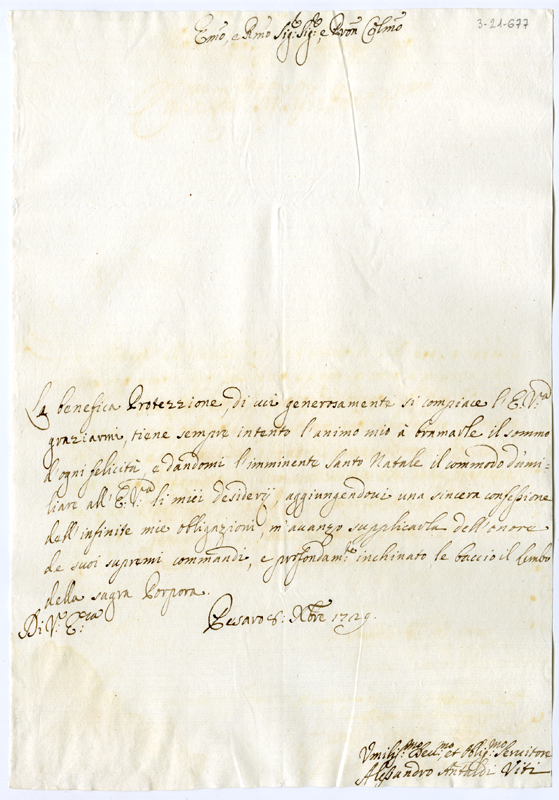 3-21-677
Em̃o, e Rm̃o Sig:re Sig:re, e Pron̄ Colm̃o
La benefica Protezzione, di cui generosamente si compiace l'E. V.ra
graziarmi, tiene sempre intento l'animo mio à bramarle il sommo
d'ogni felicità, e dandomi l'imminente Santo Natale il commodo d'umi-
liare all'E: V.ra li miei desiderij, aggiungendovi una sincera confessione
dell'infinite mie obligazioni, m'avanzo supplicarla dell'onore
de suoi supremi commandi, e profondam:te inchinato le baccio il limbo
della sagra Porpora.
Di V.a E:za
Pesaro 8: Xbre 1729.
Vmiliss:mo Dev:mo, et Oblig:mo Servitore
Alessandro Antaldi Viti